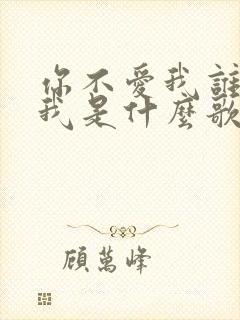 你不愛我誰
我是什麼歌
顧萬峰